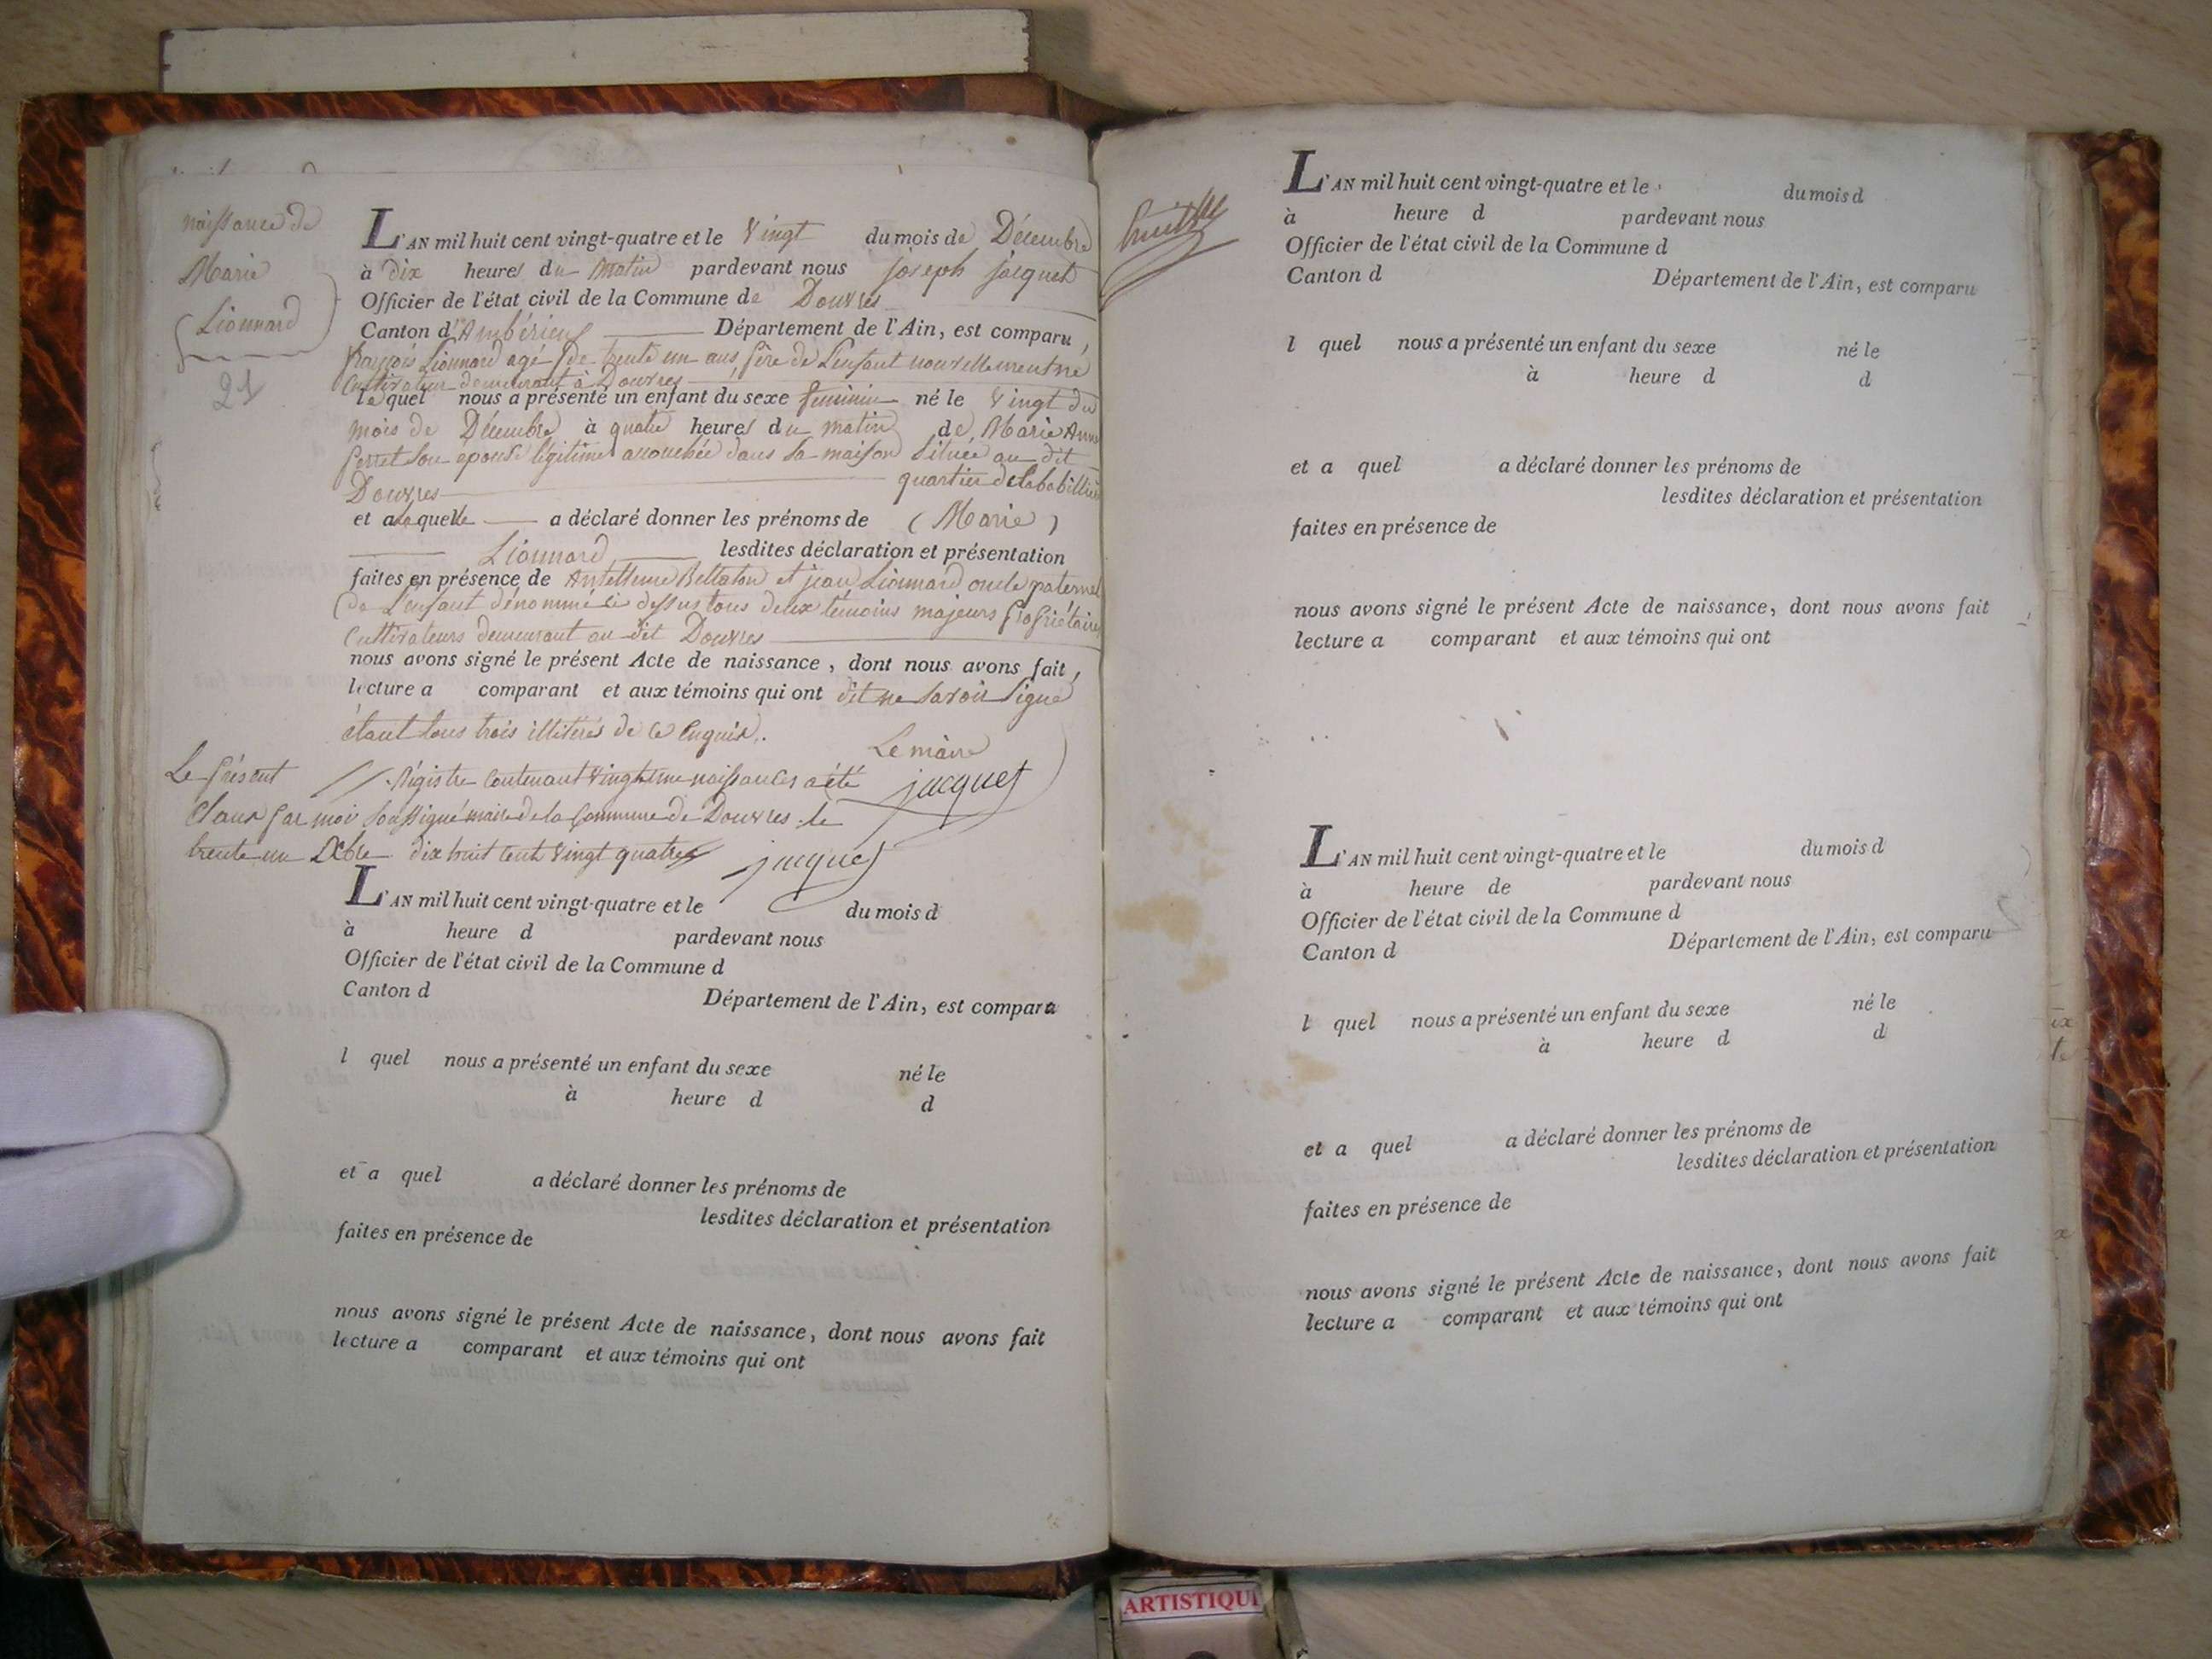 naissance de
Marie
Lionnard
21
L'AN mil huit cent vingt-quatre et le Vingt du mois de Décembre
à dix heures du matin pardevant nous joseph jacquet
Officier de l'état civil de la Commune de Douvres
Canton d'Ambérieux Département de l'Ain, est comparu
françois Lionnard agé de trente un ans, père de l'enfant nouvellement né
Cultivateur demeurant à Douvres
lequel nous a présenté un enfant du sexe feminin né le Vingt du
mois de Décembre à quatre heures du matin de Marie Anne
perret son épouse légitime accouchée dans sa maison située au dit
Douvres quartier de
et a laquelle a déclaré donner les prénoms de (Marie)
Lionnard lesdites déclaration et présentation
faites en présence de Anthelme et jean Lionnard oncle paternel
de L'enfant dénommé ci dessus tous deux témoins majeurs propriétaires
Cultivateurs demeurant au dit Douvres
nous avons signé le présent Acte de naissance, dont nous avons fait
lecture a comparant et aux témoins qui ont dit ne savoir signé
étant tous trois de ce enquis.
Le maire
jacquet
Le présent Régistre contenant vingt une naissances a été
Claus par moi soussigné maire de la Commune de Douvres le
trente un Xbre dix huit cent vingt quatre
jacquet
L'AN mil huit cent vingt-quatre et le du mois d
à heure d pardevant nous
Officier de l'état civil de la Commune d
Canton d Département de l'Ain, est comparu
l quel nous a présenté un enfant du sexe né le
à heure d d
et a quel a déclaré donner les prénoms de
lesdites déclaration et présentation
faites en présence de
nous avons signé le présent Acte de naissance, dont nous avons fait
lecture a comparant et aux témoins qui ont
L'AN mil huit cent vingt-quatre et le du mois d
à heure d pardevant nous
Officier de l'état civil de la Commune d
Canton d Département de l'Ain, est comparu
l quel nous a présenté un enfant du sexe né le
à heure d d
et a quel a déclaré donner les prénoms de
lesdites déclaration et présentation
faites en présence de
nous avons signé le présent Acte de naissance, dont nous avons fait
lecture a comparant et aux témoins qui ont
L'AN mil huit cent vingt-quatre et le du mois d
à heure de pardevant nous
Officier de l'état civil de la Commune d
Canton d Département de l'Ain, est comparu
l quel nous a présenté un enfant du sexe né le
à heure d d
et a quel a déclaré donner les prénoms de
lesdites déclaration et présentation
faites en présence de
nous avons signé le présent Acte de naissance, dont nous avons fait
lecture a comparant et aux témoins qui ont
ARTISTIQU